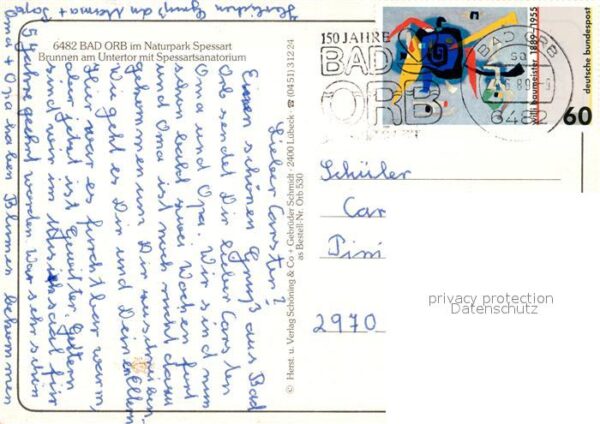 Herzlichen Gruß an Mama + Papa
6482 BAD ORB im Naturpark Spessart
Brunnen am Untertor mit Spessartsanatorium
Lieber Carsten!
Einen schönen Gruß aus Bad
Orb sendet Dir lieber Carsten
Oma und Opa. Wir sind nun
schon bald zwei Wochen hier
und Oma ist noch nicht dazu
gekommen um Dir zu schreiben.
Wie geht es Dir und Deinen Eltern
Hier war es furchtbar warm,
aber jetzt ist Gewitter. Gestern
sind wir im Musiksaal für
5 Jahre geehrt worden War sehr schön
Oma + Opa haben Blumen bekommen
© Herst. u. Verlag Schöning & Co + Gebrüder Schmidt · 2400 Lübeck · ☎ (0451) 31224
as Bestell-Nr. Orb 530
150 JAHRE
BAD
ORB
BAD ORB
6482
willi baumeister 1889-1955
deutsche bundespost
60
Schüler
Car
Pini
2970
privacy protection
Datenschutz